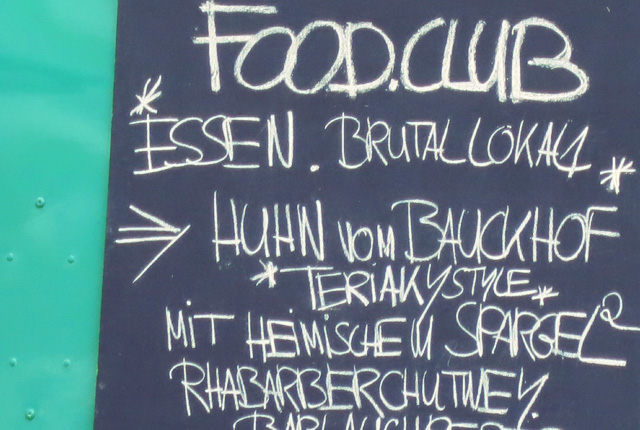 FOOD.CLUB
* ESSEN. BRUTAL LOKAL *
⇒ HUHN VOM BAUCKHOF
*TERIAKYSTYLE*
MIT HEIMISCHEM SPARGEL
RHABARBERCHUTNEY